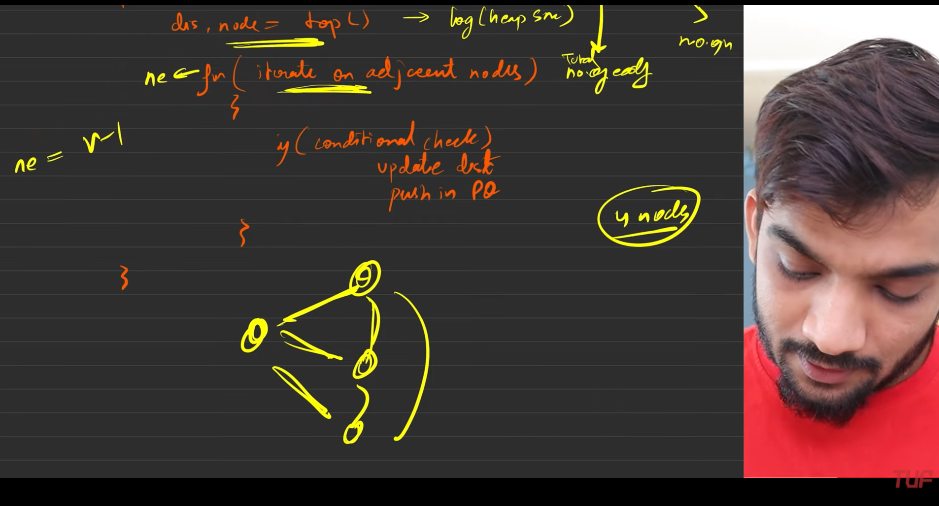 dis, node = top() → log(heap size)
no. of
ne ← for( iterate on adjacent nodes) Total no. of edges
}
ne = v-1
if( conditional check)
update dist
push in PQ
4 nodes
}
}
TUF